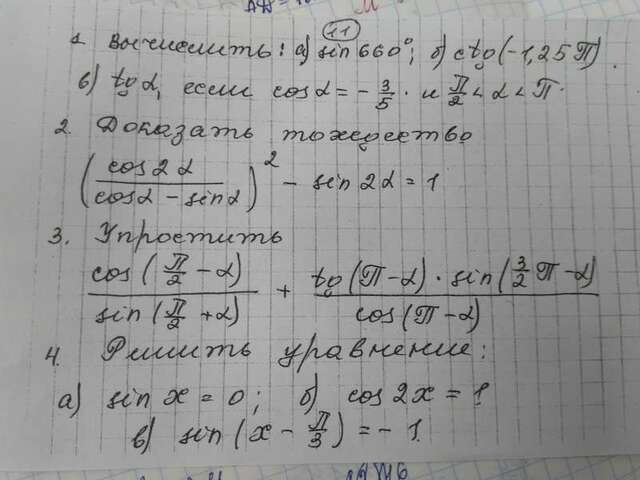 11
1. Вычислить: а) sin 660°; б) ctg(-1,25π).
в) tg α, если cos α = -3/5 и π/2 < α < π.
2. Доказать тождество
(cos 2α / (cos α - sin α))² - sin 2α = 1
3. Упростить
cos(π/2 - α) / sin(π/2 + α) + tg(π-α) · sin(3/2 π-α) / cos(π-α)
4. Решить уравнение:
а) sin x = 0; б) cos 2x = 1
в) sin(x - π/3) = -1